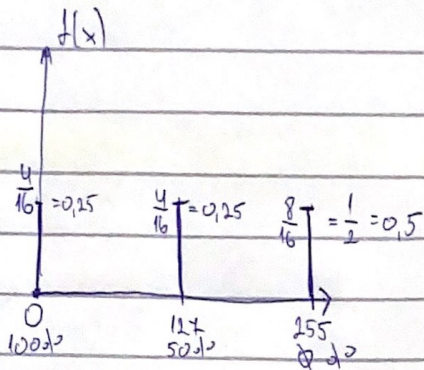 f(x)
4/16 = 0,25
4/16 = 0,25
8/16 = 1/2 = 0,5
0
100%
127
50%
255
0 %